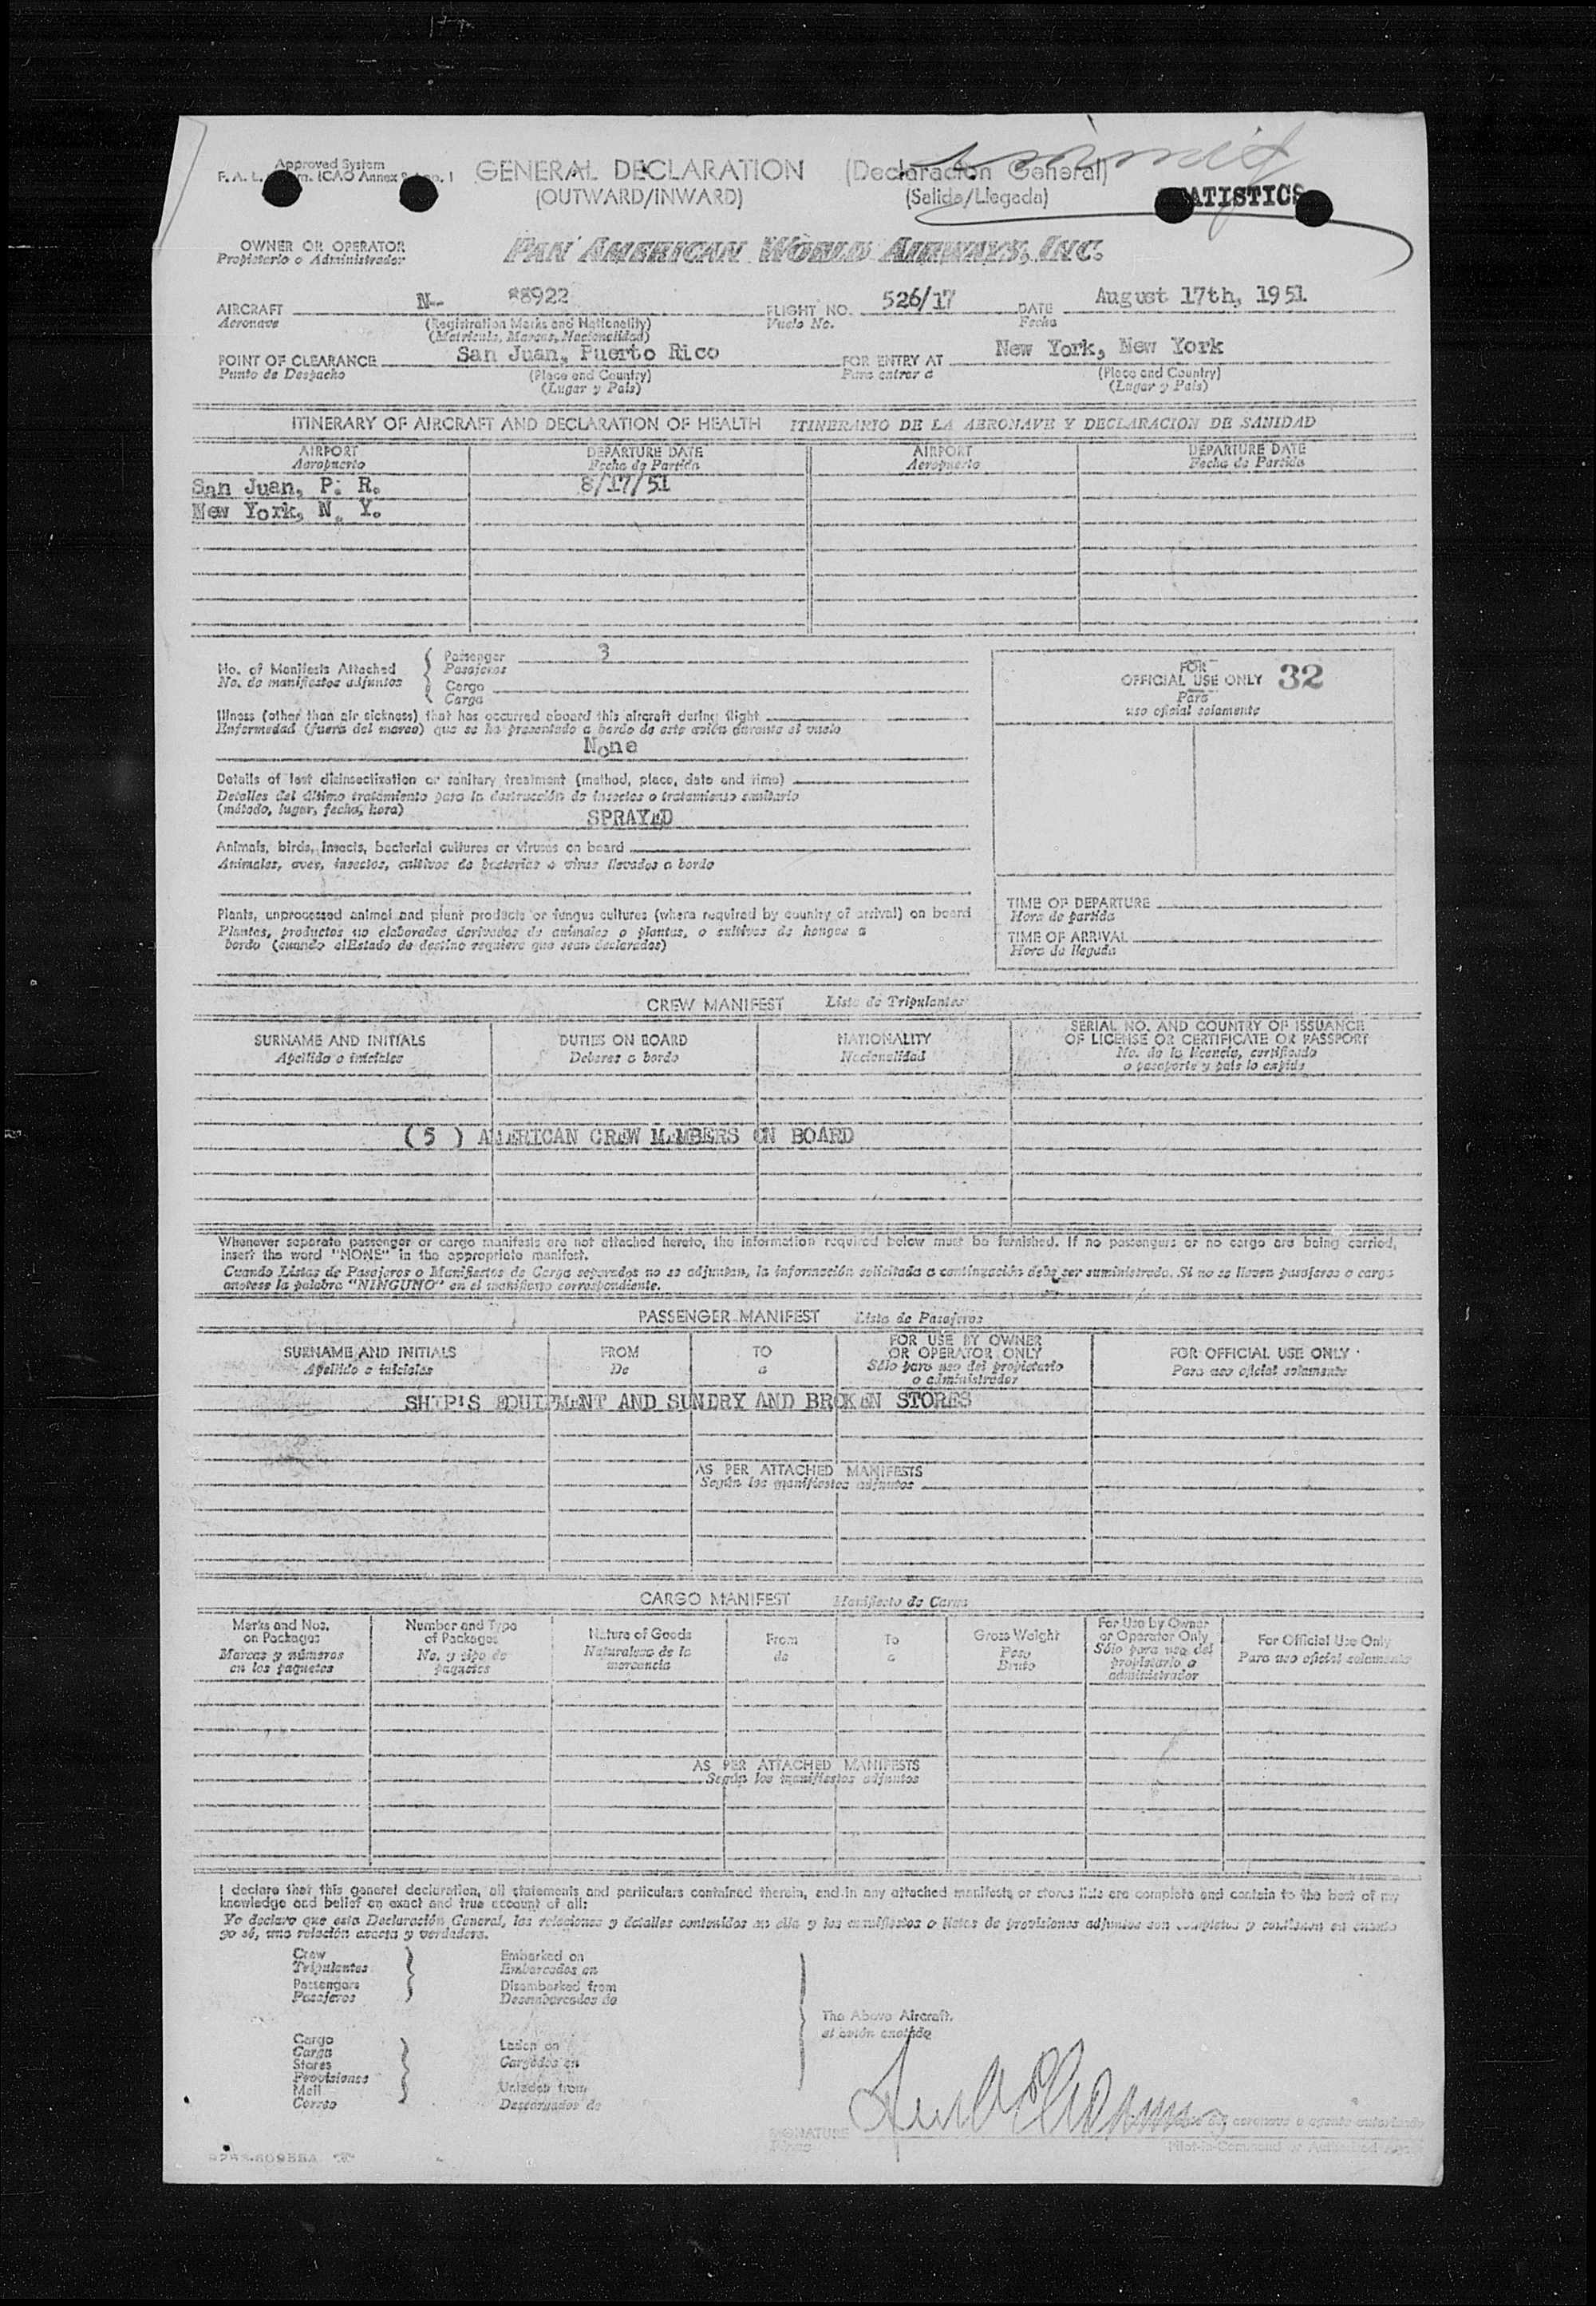 Approved System
GENERAL DECLARATION (Declaración General)
(OUTWARD/INWARD) (Salida/Llegada)
F. A. L. ICAO Annex
OWNER OR OPERATOR
Propietario o Administrador
PAN AMERICAN WORLD AIRWAYS, INC.
AIRCRAFT N-- 88922 FLIGHT NO. 526/17 DATE August 17th, 1951
Aeronave (Registration Marks and Nationality) Vuelo No. Fecha
(Matricula, Marcas, Nacionalidad)
POINT OF CLEARANCE San Juan, Puerto Rico FOR ENTRY AT New York, New York
Punto de Despacho (Place and Country) Para entrar a (Place and Country)
(Lugar y País) (Lugar y País)
ITINERARY OF AIRCRAFT AND DECLARATION OF HEALTH ITINERARIO DE LA AERONAVE Y DECLARACION DE SANIDAD
AIRPORT DEPARTURE DATE AIRPORT DEPARTURE DATE
Aeropuerto Fecha de Partida Aeropuerto Fecha de Partida
San Juan, P. R. 8/17/51
New York, N. Y.
No. of Manifests Attached
No. de manifiestos adjuntos
Passenger 3
Pasajeros
Cargo
Carga
Illness (other than air sickness) that has occurred aboard this aircraft during flight
Enfermedad (fuera del mareo) que se ha presentado a bordo de este avión durante el vuelo
None
Details of last disinsectization or sanitary treatment (method, place, date and time)
Detalles del último tratamiento para la destrucción de insectos o tratamiento sanitario
(método, lugar, fecha, hora)
SPRAYED
Animals, birds, insects, bacterial cultures or viruses on board
Animales, aves, insectos, cultivos de bacterias o virus llevados a bordo
Plants, unprocessed animal and plant products or fungus cultures (where required by country of arrival) on board
Plantas, productos no elaborados derivados de animales o plantas, o cultivos de hongos a
bordo (cuando el Estado de destino requiera que sean declarados)
FOR
OFFICIAL USE ONLY 32
Para
uso oficial solamente
TIME OF DEPARTURE
Hora de partida
TIME OF ARRIVAL
Hora de llegada
CREW MANIFEST Lista de Tripulantes
SURNAME AND INITIALS DUTIES ON BOARD NATIONALITY SERIAL NO. AND COUNTRY OF ISSUANCE
OF LICENSE OR CERTIFICATE OR PASSPORT
Apellido o iniciales Deberes a bordo Nacionalidad No. de la licencia, certificado
o pasaporte y país lo expide
( 5 ) AMERICAN CREW MEMBERS ON BOARD
Whenever separate passenger or cargo manifests are not attached hereto, the information required below must be furnished. If no passengers or no cargo are being carried,
insert the word "NONE" in the appropriate manifest.
Cuando Listas de Pasajeros o Manifiestos de Carga separados no se adjuntan, la información solicitada a continuación debe ser suministrada. Si no se llevan pasajeros o carga
anótese la palabra "NINGUNO" en el manifiesto correspondiente.
PASSENGER MANIFEST Lista de Pasajeros
SURNAME AND INITIALS FROM TO FOR USE BY OWNER
OR OPERATOR ONLY FOR OFFICIAL USE ONLY
Apellido e iniciales De a Sólo para uso del propietario
o administrador Para uso oficial solamente
SHIP'S EQUIPMENT AND SUNDRY AND BROKEN STORES
AS PER ATTACHED MANIFESTS
Según los manifiestos adjuntos
CARGO MANIFEST Manifiesto de Carga
Marks and Nos.
on Packages
Marcas y números
en los paquetes
Number and Type
of Packages
No. y tipo de
paquetes
Nature of Goods
Naturaleza de la
mercancía
From
de
To
a
Gross Weight
Peso
Bruto
For Use by Owner
or Operator Only
Sólo para uso del
propietario o
administrador
For Official Use Only
Para uso oficial solamente
AS PER ATTACHED MANIFESTS
Según los manifiestos adjuntos
I declare that this general declaration, all statements and particulars contained therein, and in any attached manifests or stores lists are complete and contain to the best of my
knowledge and belief an exact and true account of all:
Yo declaro que esta Declaración General, las relaciones y detalles contenidos en ella y los manifiestos o listas de provisiones adjuntos son completos y contienen en cuanto
yo sé, una relación exacta y verdadera.
Crew
Tripulantes
Passengers
Pasajeros
Embarked on
Embarcados en
Disembarked from
Desembarcados de
The Above Aircraft.
el avión anotado
Cargo
Carga
Stores
Provisiones
Mail
Correo
Laden on
Cargados en
Unladen from
Descargados de
SIGNATURE
Firma
aeronave o agente autorizado
Pilot-in-Command or Authorized Agent